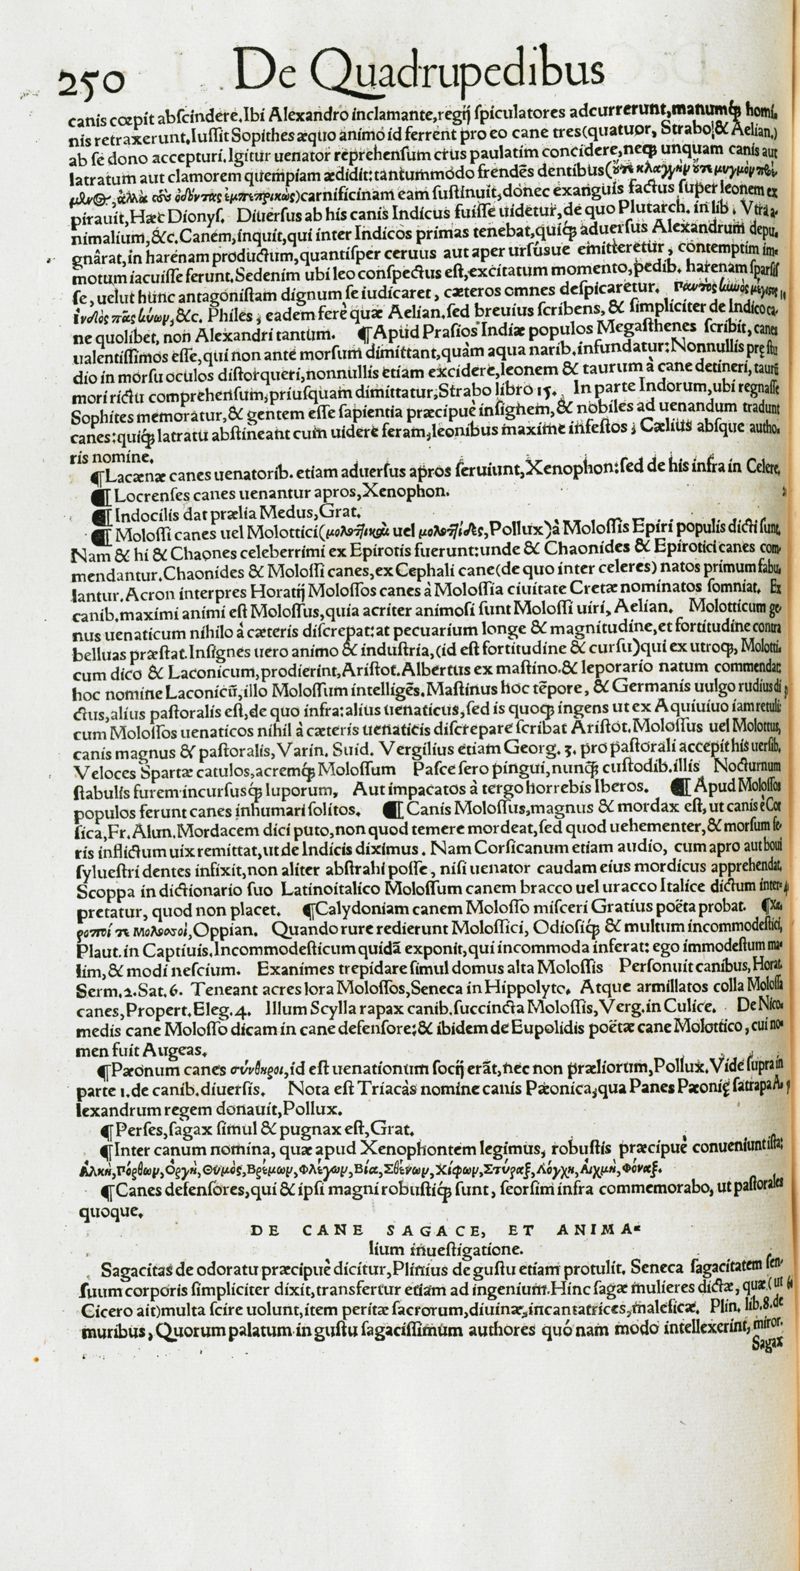 250 De Quadrupedibus
canis cœpit abſcindere. Ibi Alexandro inclamante, regij ſpiculatores adcurrerunt, manumq́; homi⸗
nis retraxerunt. Iuſſit Sopithes æquo animo id ferrent pro eo cane tres (quatuor, Strabo & Aelian.)
ab ſe dono accepturi. Igitur uenator reprehenſum crus paulatim concidere, neq; unquam canis aut
latratum aut clamorem quempiam ædidit: tantummodo frendẽs dentibus (ὅτε κλαγγὴν ὅτε μυγμὸν
ἀλλὰ τοὺς ὀδόντας ἐμπεπρικὼς) carnificinam eam ſuſtinuit, donec exanguis factus ſuper leonem ex
pirauit, Hæc Dionyſ. Diuerſus ab his canis Indicus fuiſſe uidetur, de quo Plutarch. in lib. Vtra a⸗
nimalium, &c. Canem, inquit, qui inter Indicos primas tenebat, quiq́; aduerſus Alexandrum depu⸗
gnârat, in harenam productum, quantiſper ceruus aut aper urſúsue emitteretur, contemptim im⸗
motum iacuiſſe ferunt. Sed enim ubi leo conſpectus eſt, excitatum momento, pedib. harenam ſparſiſ
ſe, uelut hunc antagoniſtam dignum ſe iudicaret, cæteros omnes deſpicaretur.
ἰνδὸς πᾶς κύων, &c. Philes, eadem ferè quæ Aelian. ſed breuius ſcribens, & ſimpliciter de Indico ca⸗
ne quolibet, non Alexandri tantum. ¶Apud Praſios Indiæ populos Megaſthenes ſcribit, canes
ualentiſſimos eſſe, qui non ante morſum dimittant, quàm aqua narib. infundatur: Nonnullis prę ſtu
dio in morſu oculos diſtorqueri, nonnullis etiam excidere, leonem & taurum à cane detineri, taurũ
mori rictu comprehenſum, priuſquam dimittatur, Strabo libro 15. In parte Indorum, ubi regnaſſe
Sophites memoratur, & gentem eſſe ſapientia præcipuè inſignem, & nobiles ad uenandum tradunt
canes: quiq́; latratu abſtineant cum uidere feram, leonibus maxime infeſtos; Cælius abſque autho⸗
ris nomine.
¶Lacænæ canes uenatorib. etiam aduerſus apros ſeruiunt, Xenophon: ſed de his infra in Celere.
¶Locrenſes canes uenantur apros, Xenophon.
¶Indocilis dat prælia Medus, Grat.
¶Moloſſi canes uel Molottici (μολοττικαὶ uel μολοττίδες, Pollux) à Moloſſis Epiri populis dicti ſunt.
Nam & hi & Chaones celeberrimi ex Epirotis fuerunt: unde & Chaonides & Epirotici canes com⸗
mendantur. Chaonides & Moloſſi canes, ex Cephali cane (de quo inter celeres) natos primum fabu⸗
lantur. Acron interpres Horatij Moloſſos canes à Moloſſia ciuitate Cretæ nominatos ſomniat. Ex
canib. maximi animi eſt Moloſſus, quia acriter animoſi ſunt Moloſſi uiri, Aelian. Molotticum ge⸗
nus uenaticum nihilo à cæteris diſcrepat: at pecuarium longe & magnitudine, et fortitudine contra
belluas præſtat. Inſignes uero animo & induſtria, (id eſt fortitudine & curſu) qui ex utroq;, Molotti⸗
cum dico & Laconicum, prodierint, Ariſtot. Albertus ex maſtino & leporario natum commendat:
hoc nomine Laconicũ, illo Moloſſum intelligẽs. Maſtinus hoc tẽpore, & Germanis uulgo rudius di
ctus, alius paſtoralis eſt, de quo infra: alius uenaticus, ſed is quoq; ingens ut ex Aquiuiuo iam retuli:
cum Moloſſos uenaticos nihil à cæteris uenaticis diſcrepare ſcribat Ariſtot. Moloſſus uel Molottus,
canis magnus & paſtoralis, Varin. Suid. Vergilius etiam Georg. 3. pro paſtorali accepit his uerſib.
Veloces Spartæ catulos, acremq́; Moloſſum Paſce ſero pingui, nunq̃; cuſtodib. illis Nocturnum
ſtabulis furem incurſusq́; luporum, Aut impacatos à tergo horrebis Iberos. ¶Apud Moloſſos
populos ferunt canes inhumari ſolitos. ¶Canis Moloſſus, magnus & mordax eſt, ut canis è Cor
ſica, Fr. Alun. Mordacem dici puto, non quod temere mordeat, ſed quod uehementer, & morſum ſe⸗
ris inflictum uix remittat, ut de Indicis diximus. Nam Corſicanum etiam audio, cum apro aut boui
ſylueſtri dentes infixit, non aliter abſtrahi poſſe, niſi uenator caudam eius mordicus apprehendat.
Scoppa in dictionario ſuo Latinoitalico Moloſſum canem bracco uel uracco Italice dictum inter⸗
pretatur, quod non placet. ¶Calydoniam canem Moloſſo miſceri Gratius poëta probat. ¶Χα⸗
ροποί τε Μολοσσοί, Oppian. Quando rure redierunt Moloſſici, Odioſiq́; & multum incommodeſtici,
Plaut. in Captiuis. Incommodeſticum quidã exponit, qui incommoda inferat: ego immodeſtum ma⸗
lim, & modi neſcium. Exanimes trepidare ſimul domus alta Moloſſis Perſonuit canibus, Horat.
Serm. 2. Sat. 6. Teneant acres lora Moloſſos, Seneca in Hippolyto. Atque armillatos colla Moloſſa
canes, Propert. Eleg. 4. Illum Scylla rapax canib. ſuccincta Moloſſis, Verg. in Culice. De Nico⸗
medis cane Moloſſo dicam in cane defenſore: & ibidem de Eupolidis poëtæ cane Molottico, cui no⸗
men fuit Augeas.
¶Pæonum canes σύνθηροι, id eſt uenationum ſocij erãt, nec non præliorum, Pollux. Vide ſupra in
parte 1. de canib. diuerſis. Nota eſt Triacàs nomine canis Pæonica, qua Panes Pæonię ſatrapa A⸗
lexandrum regem donauit, Pollux.
¶Perſes, ſagax ſimul & pugnax eſt, Grat.
¶Inter canum nomina, quæ apud Xenophontem legimus, robuſtis præcipuè conueniunt iſta:
Ἀλκή, Πόρθων, Ὀργή, Θυμός, Βρέμων, Φλέγων, Βία, Σθένων, Χίφων, Στύραξ, Λόγχη, Αἰχμή, Φόναξ.
¶Canes defenſores, qui & ipſi magni robuſtiq́; ſunt, ſeorſim infra commemorabo, ut paſtorales
quoque.
DE CANE SAGACE, ET ANIMA⸗
lium inueſtigatione.
Sagacitas de odoratu præcipuè dicitur, Plinius de guſtu etiam protulit. Seneca ſagacitatem ſen⸗
ſuum corporis ſimpliciter dixit, transfertur etiam ad ingenium. Hinc ſagæ mulieres dictæ, quæ (ut
Cicero ait) multa ſcire uolunt, item peritæ ſacrorum, diuinæ, incantatrices, maleficæ. Plin. lib. 8. de
muribus, Quorum palatum in guſtu ſagaciſſimum authores quónam modo intellexerint, miror.
Sagax